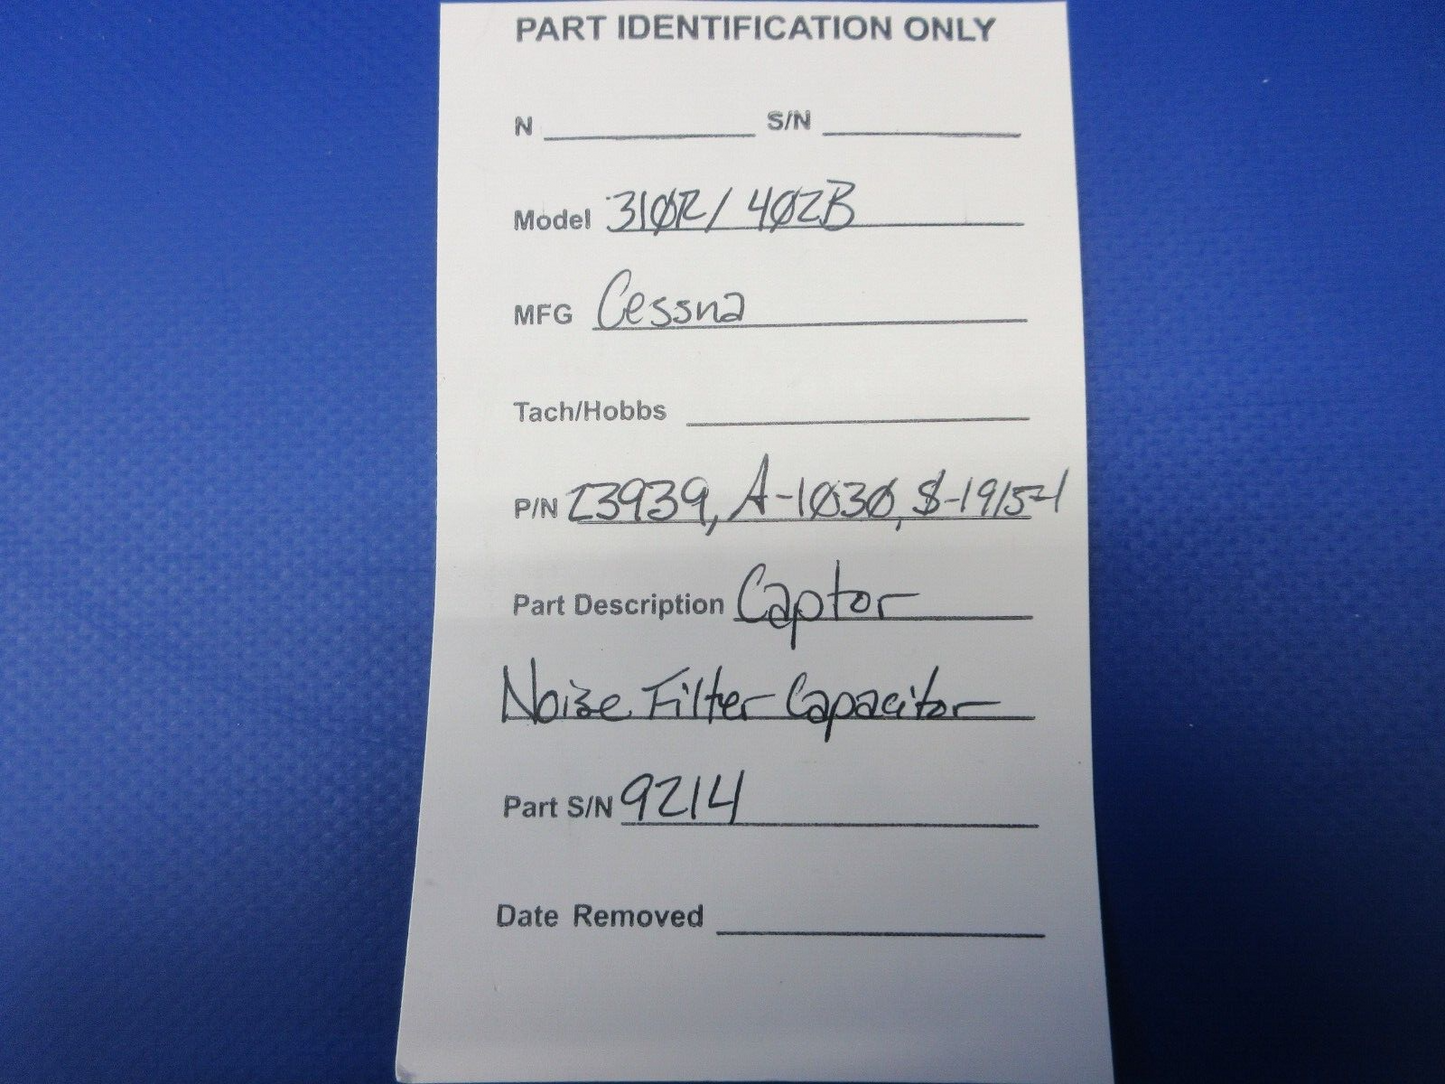 PART IDENTIFICATION ONLY
N S/N
Model 310R / 402B
MFG Cessna
Tach/Hobbs
P/N 23939, A-1030, S-1915-1
Part Description Captor
Noise Filter Capacitor
Part S/N 9214
Date Removed